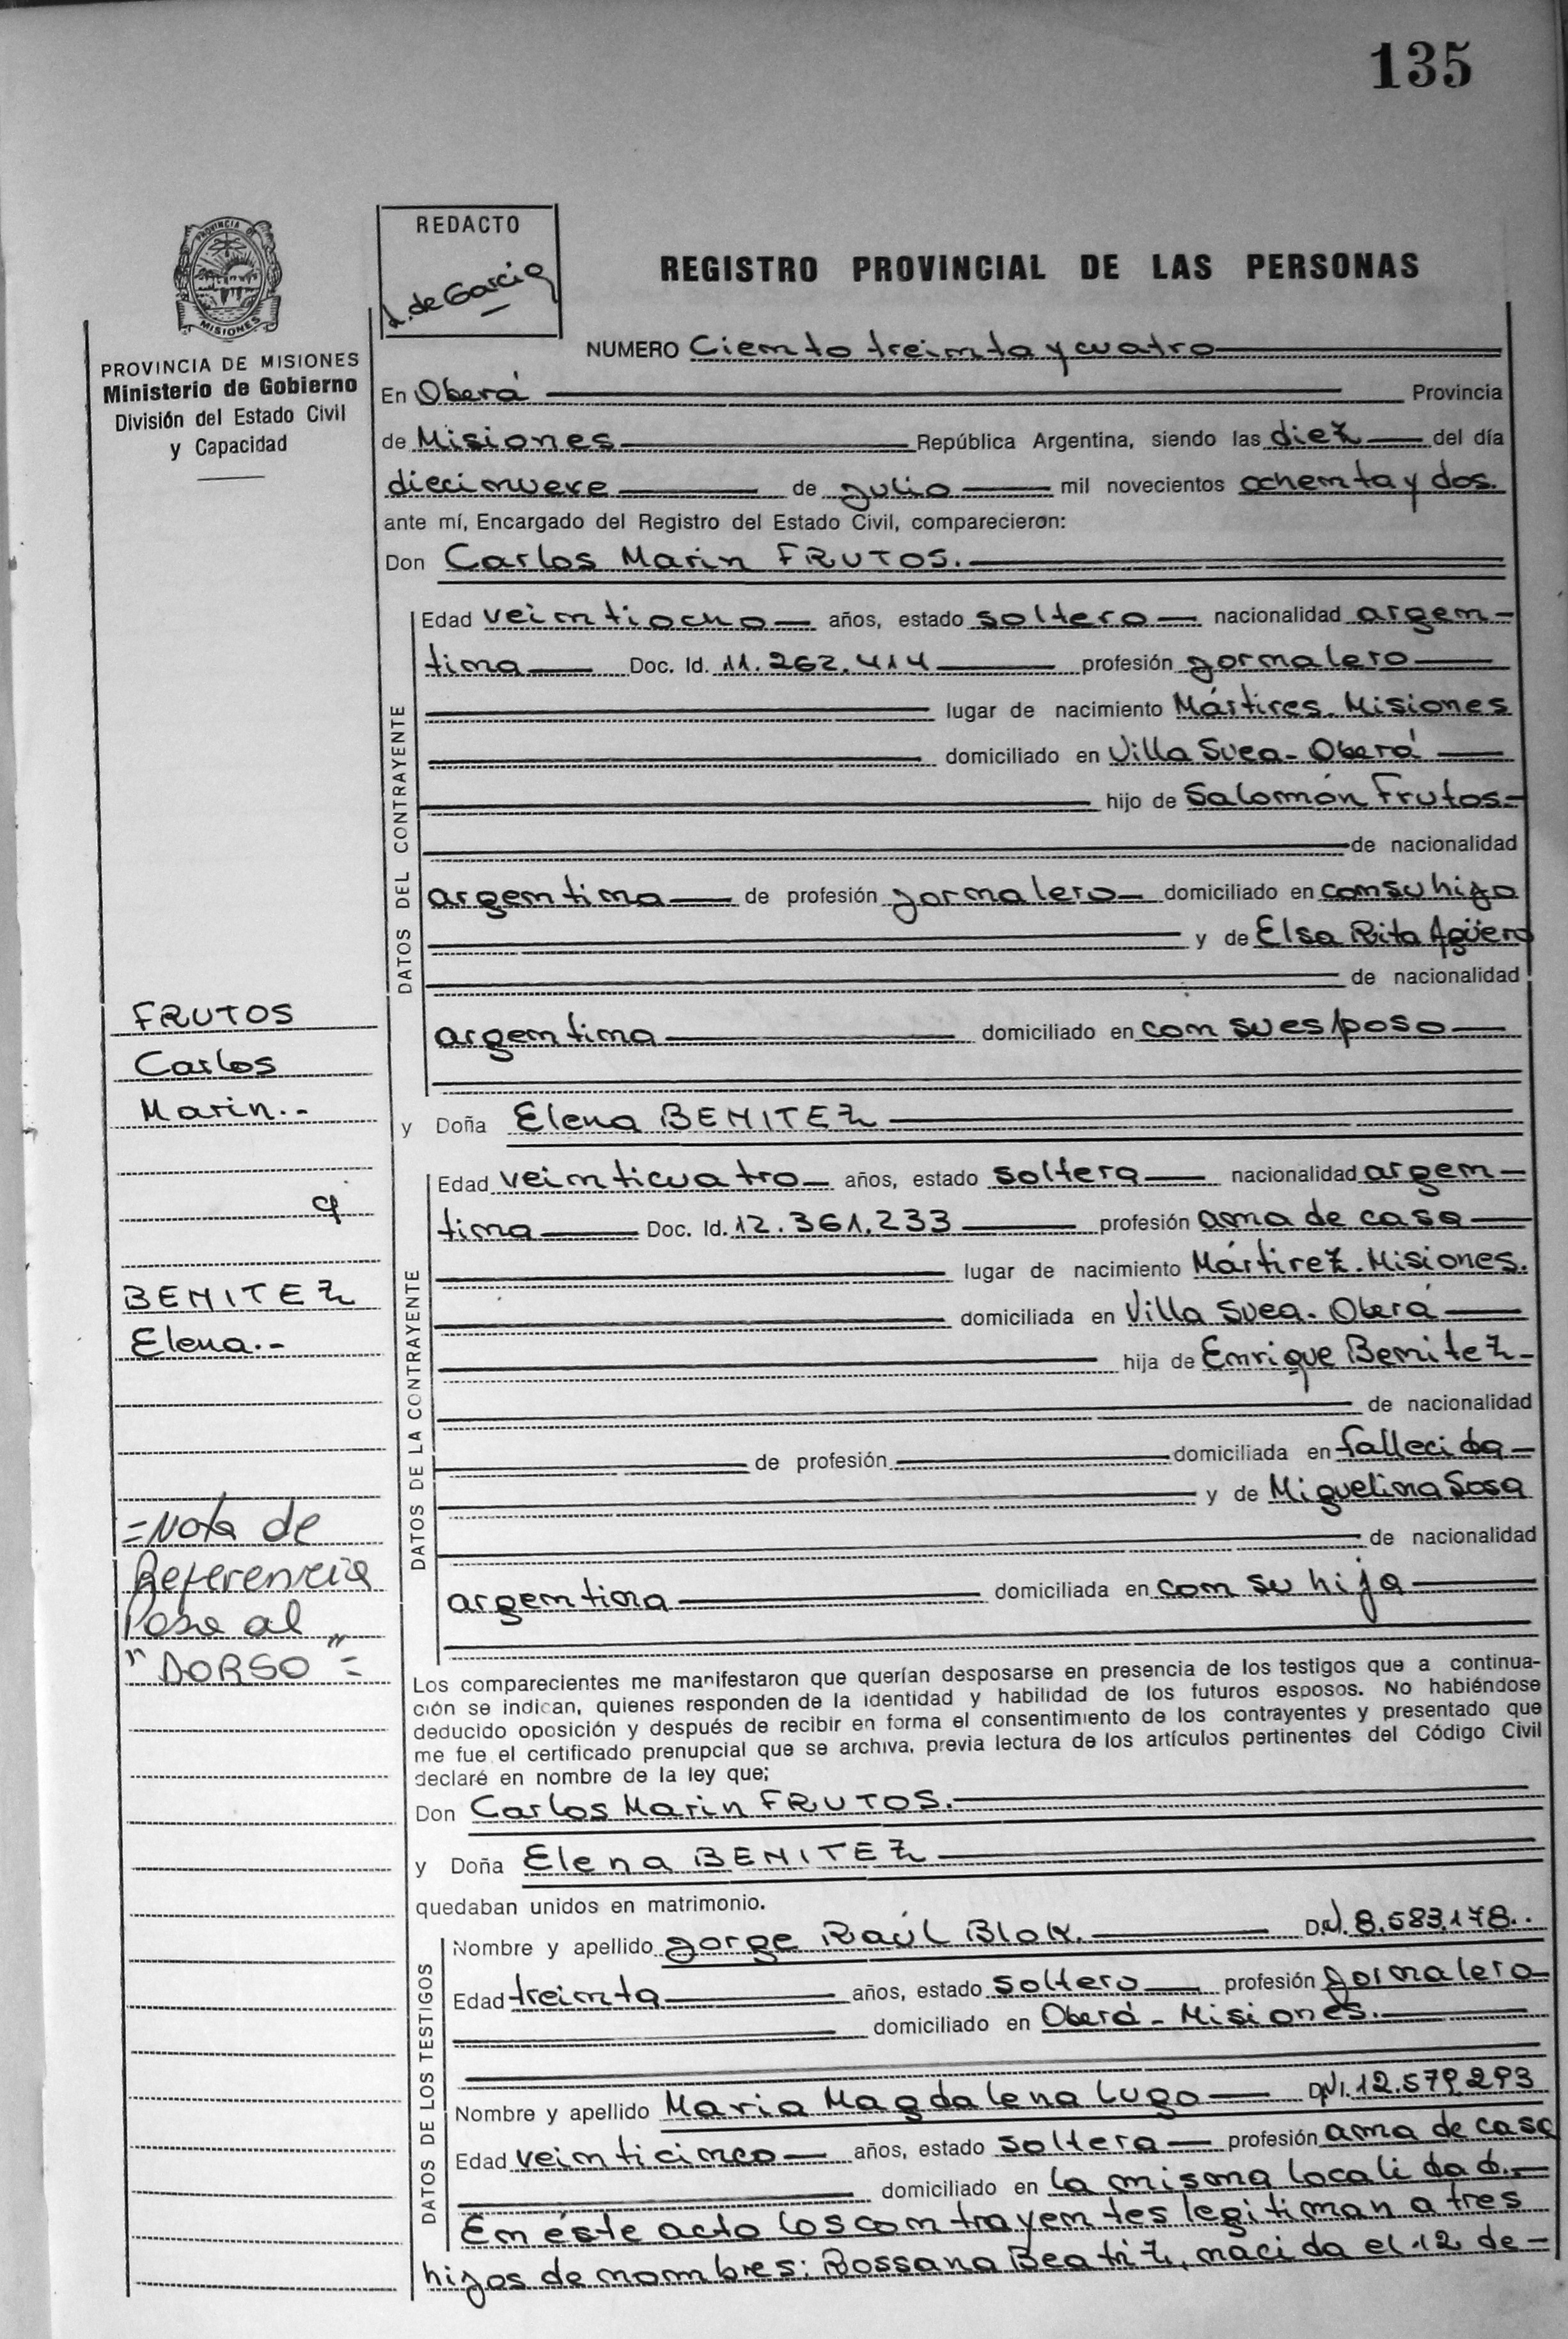 135
PROVINCIA DE
MISIONES
REDACTO
L. de Garcia
REGISTRO PROVINCIAL DE LAS PERSONAS
PROVINCIA DE MISIONES
Ministerio de Gobierno
División del Estado Civil
y Capacidad
NUMERO Ciento treinta y cuatro
En Oberá Provincia
de Misiones República Argentina, siendo las diez del día
diecinueve de julio mil novecientos ochenta y dos.
ante mí, Encargado del Registro del Estado Civil, comparecieron:
Don Carlos Marin FRUTOS.
DATOS DEL CONTRAYENTE
Edad veintiocho años, estado soltero nacionalidad argen-
tina Doc. Id. 11.262.414 profesión jornalero
lugar de nacimiento Mártires. Misiones
domiciliado en Villa Svea- Oberá
hijo de Salomón Frutos-
de nacionalidad
argentina de profesión jornalero domiciliado en con su hijo
y de Elsa Rita Agüero
de nacionalidad
argentina domiciliado en con su esposo
FRUTOS
Carlos
Marin.-
y Doña Elena BENITEZ
DATOS DE LA CONTRAYENTE
Edad veinticuatro años, estado soltera nacionalidad argen-
tina Doc. Id. 12.361.233 profesión ama de casa
lugar de nacimiento Mártirez. Misiones.
domiciliada en Villa Svea- Oberá
hija de Enrique Benitez-
de nacionalidad
de profesión domiciliada en fallecida-
y de Miguelina Sosa
de nacionalidad
argentina domiciliada en con su hija
BENITEZ
Elena.-
=Nota de
Referencia
Pase al
"DORSO"=
Los comparecientes me manifestaron que querían desposarse en presencia de los testigos que a continua-
ción se indican, quienes responden de la identidad y habilidad de los futuros esposos. No habiéndose
deducido oposición y después de recibir en forma el consentimiento de los contrayentes y presentado que
me fue el certificado prenupcial que se archiva, previa lectura de los artículos pertinentes del Código Civil
declaré en nombre de la ley que;
Don Carlos Marin FRUTOS.
y Doña Elena BENITEZ
quedaban unidos en matrimonio.
DATOS DE LOS TESTIGOS
Nombre y apellido Jorge Raúl Blok. D.N.I. 8.583.178.
Edad treinta años, estado soltero profesión jornalero
domiciliado en Oberá - Misiones.
Nombre y apellido Maria Magdalena Lugo DNI. 12.579.293
Edad veinticinco años, estado soltera profesión ama de casa
domiciliado en la misma localidad.-
En éste acto los contrayentes legitiman a tres
hijos de nombres: Rossana Beatriz, nacida el 12 de-